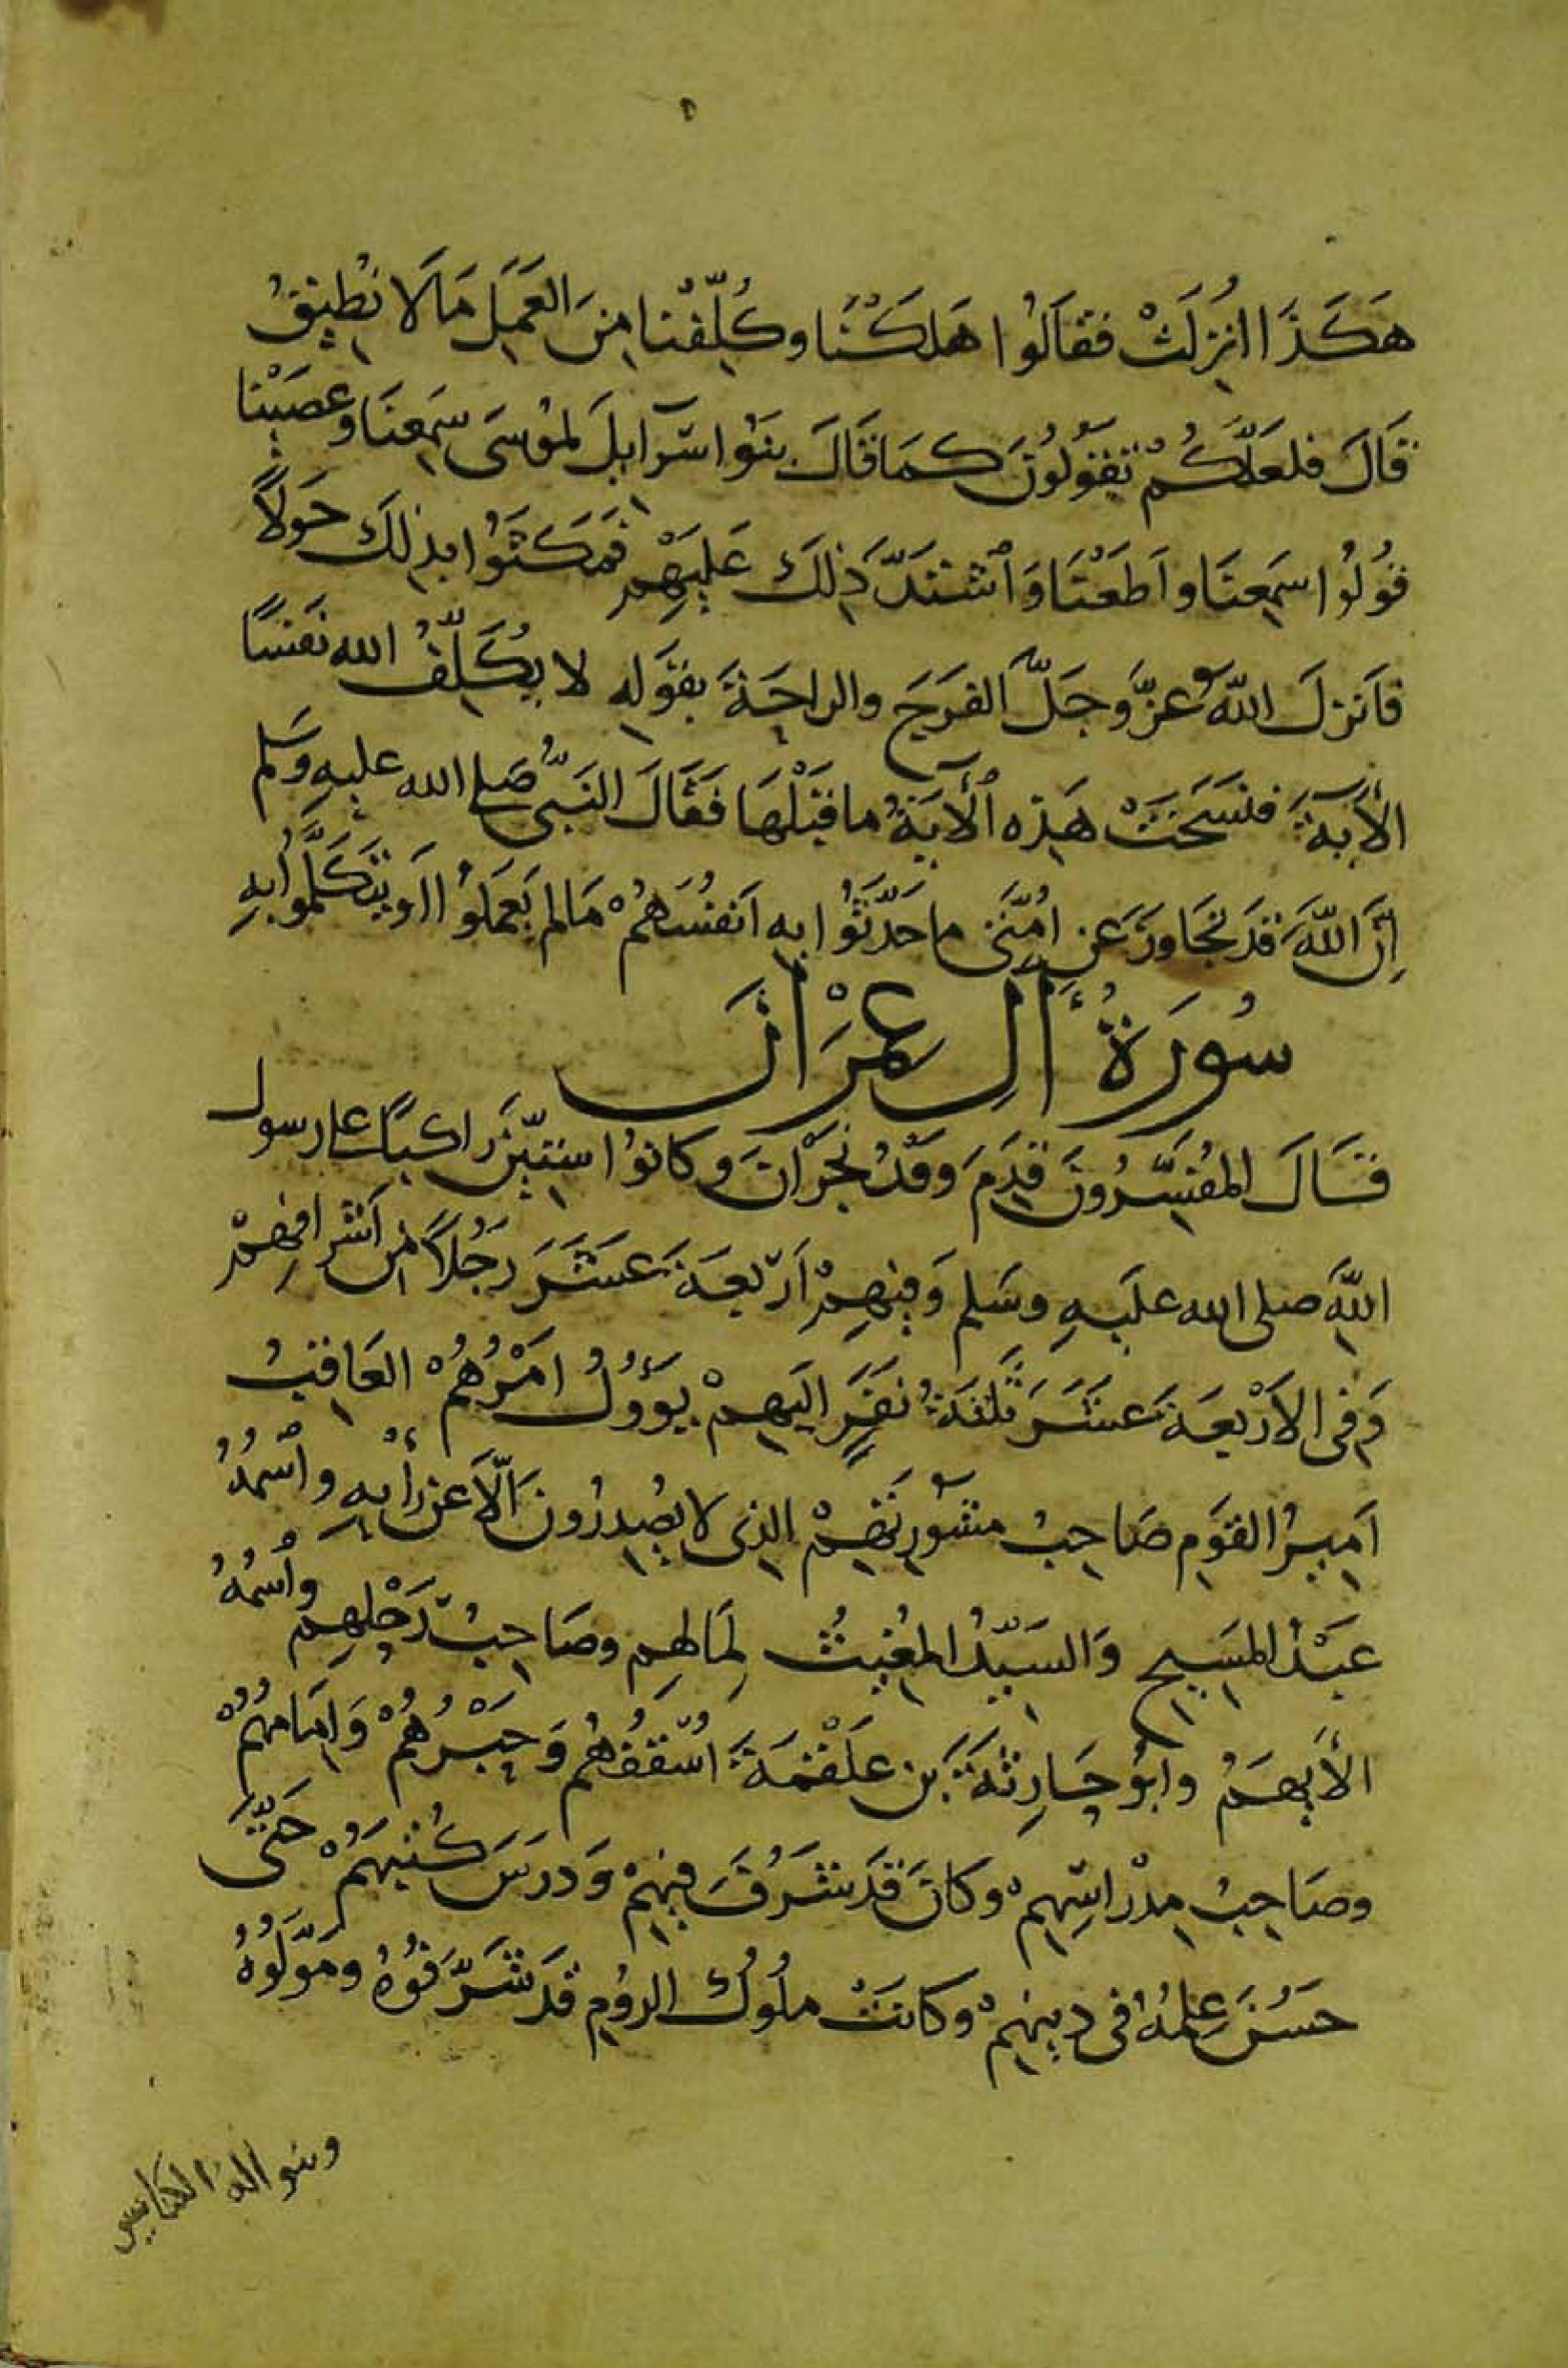 هَكَذَا اُنْزِلَتْ فَقَالُوا هَلَكْنَا وكُلِّفْنا مِنَ العَمَلِ مَا لَا نُطِيقُ
قَالَ فلعَلَّكُمْ تَقُولُونَ كمَا قَالَ بَنُوا اسْرَآايلَ لمُوسَى سَمِعنَا وعصَيْنا
قُولُوا سَمِعنَا واَطَعْنَا وَاشْتَدَّ ذَلِكَ عَليهِمْ فَمَكَثَوُا بذلِكَ حَولاً
فاَنزلَ اللهُ عزَّوَجَلَّ الفرَجَ والراحَةَ بقَولِهِ لا يُكَلِّفُ الله نَفسًا
الأيَةَ فنسَخَتْ هَذِه الأيَةُ ما قبْلَهَا فَقَالَ النَبيُّ صَلى الله عليهِ وَسَلم
اِنَّ اللهَ قَد تجَاوزَ عَنِ اُمَّتَى ما حَدَّثوُا بِهِ اَنفسَهُمْ مَالم يَعمَلوُا اَو يَتَكَلَّموُا بهِ
سُورَةُ أَلِ عِمْرَانَ
قَالَ المُفسِّرُونَ قدِمَ وَفدُ نجرَانَ وكانوُا سِتيِّنَ راكبًا على رسول
اللهِ صلى الله علَيهِ وسَلم وَفِيهِمْ اَرْبعَةَ عشَرَ رَجُلاً مِن اَشرافِهِمْ
وَفى الاَرْبعَةَ عشَرَ ثَلثَةُ نفَرٍ اِليَهِمْ يَؤوُلُ اَمْرُهُمْ العَاقبُ
اَمِيرُ القَومِ صَاحِبُ مشوُرتهِمْ الذِى لا يصُدِرُونَ اِلَّا عن رأيِهِ واْسمُهُ
عَبْدُ المسَيحِ وَالسَيّدُ المغُيثُ لمَالهِم وصَاحِبُ رَحْلِهِم واْسمُهُ
الأيهَمُ وابوُ حَارِثةَ بَن عَلْقمَةَ اُسْقفُهُم وَحَبْرُهُمْ وَاِمَامهُمْ
وصَاحِبُ مِدْراسِهِمْ وكانَ قَد شَرُفَ فيِهِمْ وَدرَسَ كُتبَهُمْ حَتَّى
حَسُنَ عِلمُهُ فى دِينِهِمْ وكَانتْ ملوُكُ الروُمِ قَد شَرَّفوُهُ ومَوَّلوُهُ
وبنو اله الكنايس